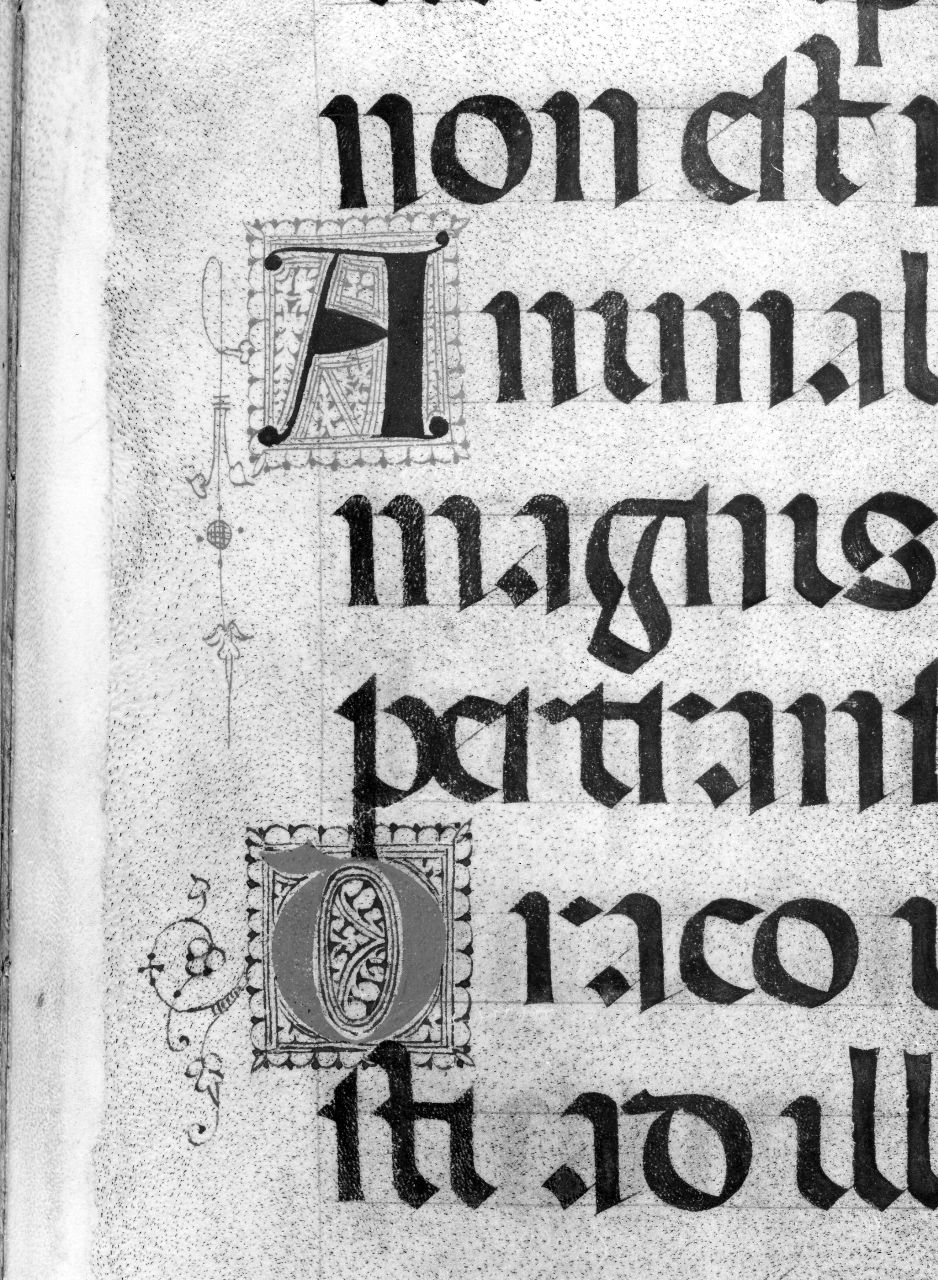 non est n
Animal
magnis
pertrans
Draco i
sti ad ill